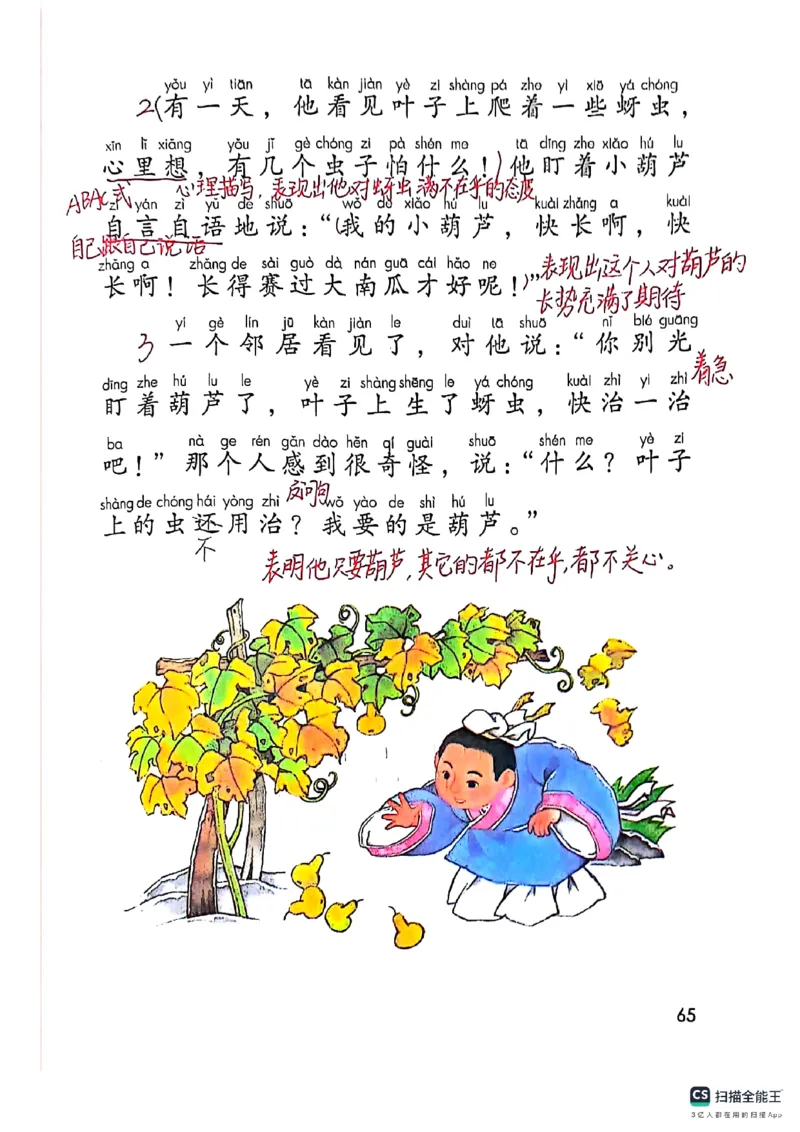 yǒu yì tiān tā kàn jiàn yè zi shàng pá zhe yì xiē yá chóng
2(有一天，他看见叶子上爬着一些蚜虫，
xīn lǐ xiǎng yǒu jǐ gè chóng zi pà shén me tā dīng zhe xiǎo hú lu
心里想，有几个虫子怕什么！)他盯着小葫芦
ABAC式 心理描写，表现出他对蚜虫满不在乎的态度
zì yán zì yǔ de shuō wǒ de xiǎo hú lu kuài zhǎng a kuài
自言自语地说：“(我的小葫芦，快长啊，快
自己跟自己说话
zhǎng a zhǎng de sài guò dà nán guā cái hǎo ne
长啊！长得赛过大南瓜才好呢！)”表现出这个人对葫芦的
长势充满了期待
yí gè lín jū kàn jiàn le duì tā shuō nǐ bié guāng
3 一个邻居看见了，对他说：“你别光
着急
dīng zhe hú lu le yè zi shàng shēng le yá chóng kuài zhì yi zhì
盯着葫芦了，叶子上生了蚜虫，快治一治
ba nà ge rén gǎn dào hěn qí guài shuō shén me yè zi
吧！”那个人感到很奇怪，说：“什么？叶子
shàng de chóng hái yòng zhì 反问 wǒ yào de shì hú lu
上的虫还用治？我要的是葫芦。”
不
表明他只要葫芦，其它的都不在乎，都不关心。
65
CS 扫描全能王
3亿人都在用的扫描App